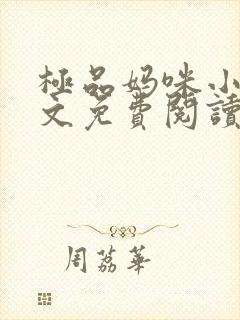 極品妈咪小
文免費閱讀
周荔華